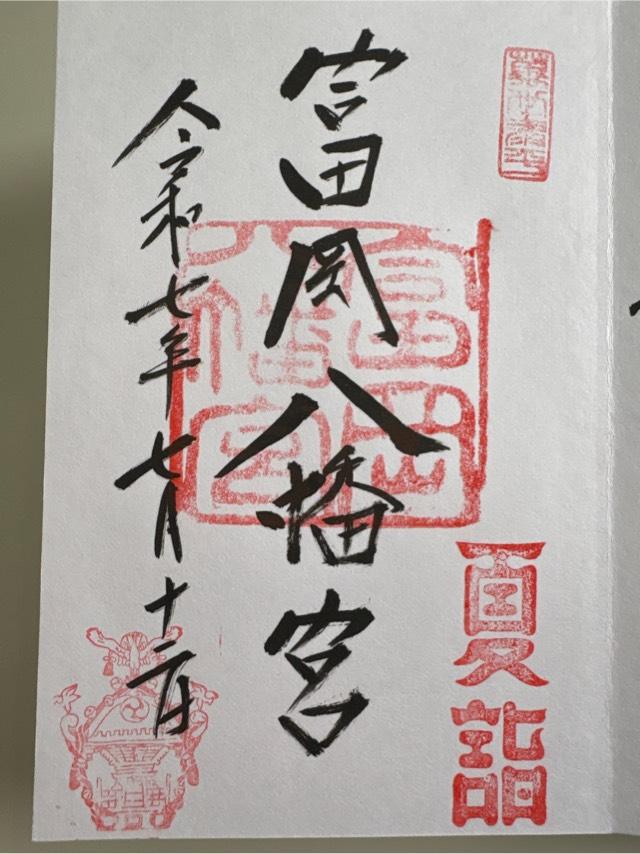 夏詣
富岡八幡宮
富岡
八幡宮
令和七年七月十二日